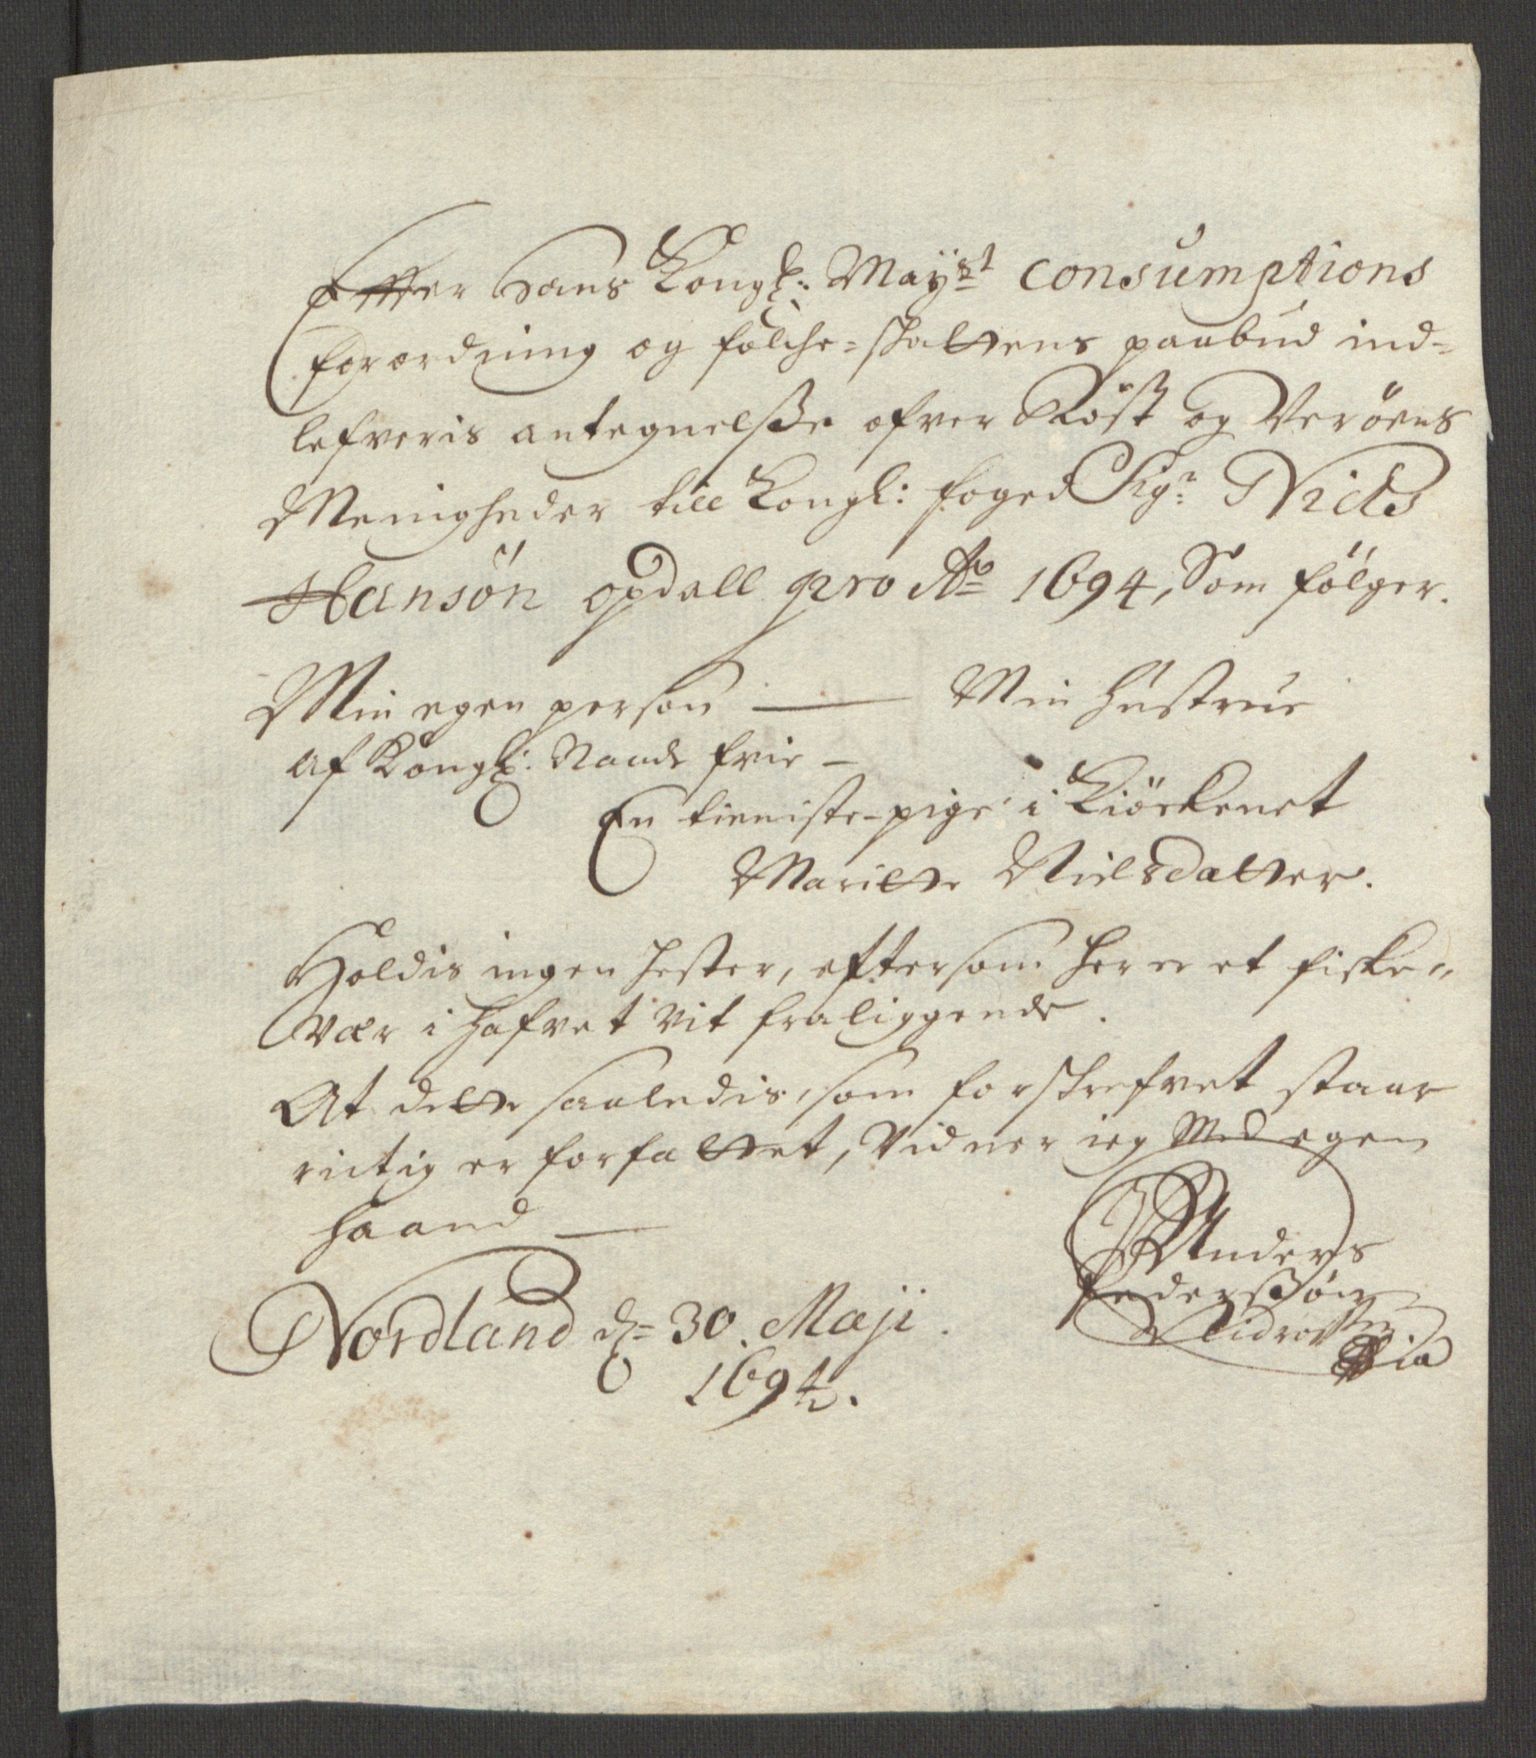 Effter Hans Kongl: Mayst consumptions
forordning og folche-skattens paabud ind-
lefveris antegnelsße ofver Röst og Veröens
Menigheder till Kongl: foged Sigr Niels
Hansön opdall pro Ao 1694, Som fölger.
Min egen person — Min hustrue
af Kongl: Naade frie —
En tieniste-pige i Kiöckenet
Maritte Nielsdatter.
Holdis ingen hester, eftersom her er et fiske-
vær i hafvet vit fraliggende.
At dette saaledis, som forskrefvet staar
rictig er forfattet, Vidner ieg Med egen
haand —
Nordland d= 30. Maji.
1694.
Anders
Pedersßön